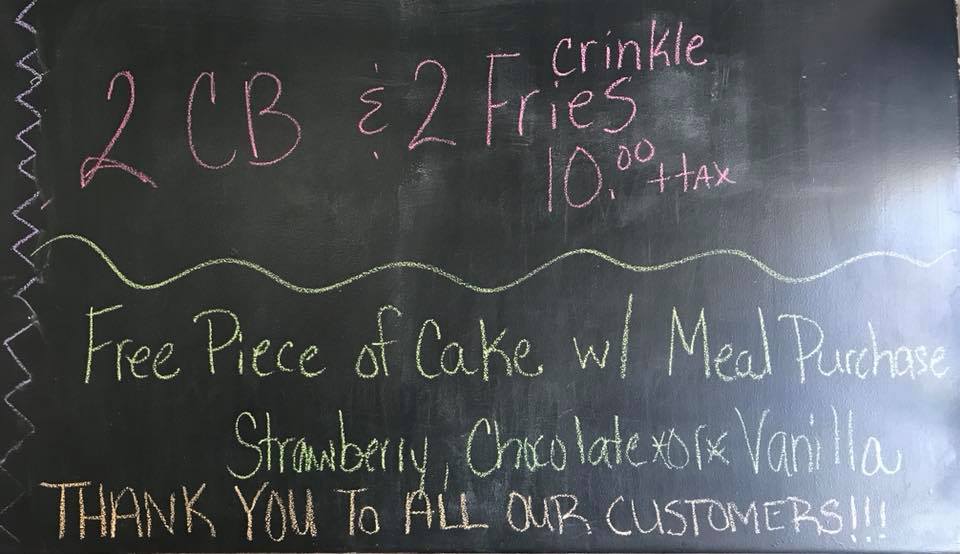 2 CB & 2 Fries
crinkle
10.00 + tax
Free Piece of Cake w/ Meal Purchase
Strawberry, Chocolate *or* Vanilla
THANK YOU To ALL OUR CUSTOMERS!!!